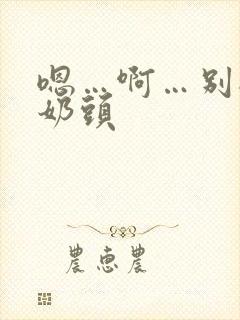 嗯…啊…别
奶頭
農恵農